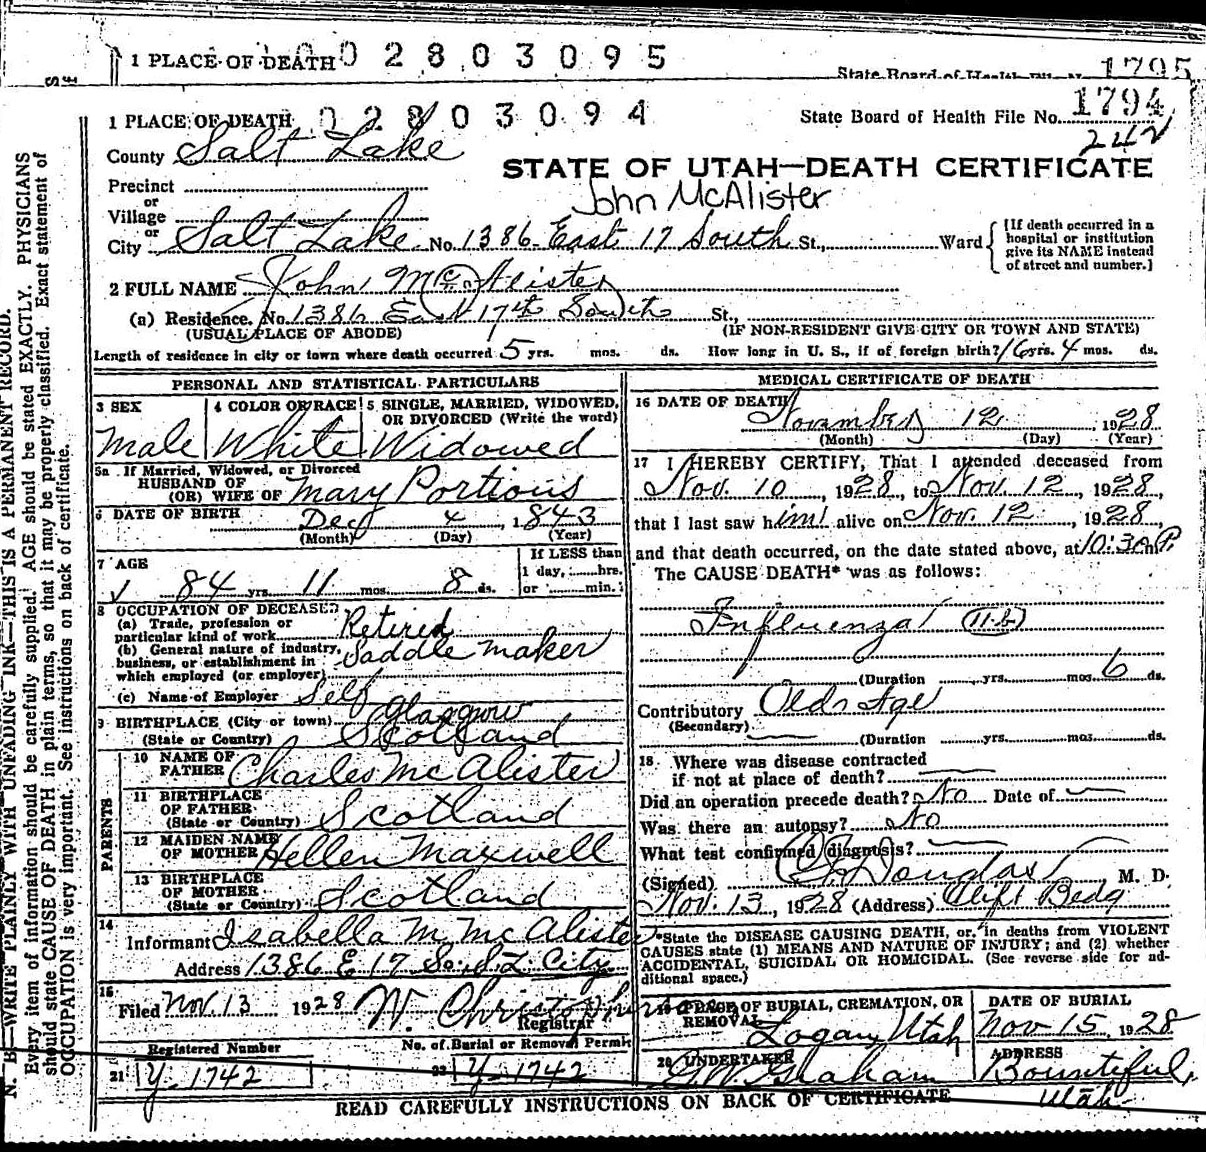 1 PLACE OF DEATH 0 0 2 8 0 3 0 9 5
State Board of Health File No. 1795
1 PLACE OF DEATH 0 2 8 0 3 0 9 4
State Board of Health File No. 1794
242
County Salt Lake
STATE OF UTAH—DEATH CERTIFICATE
Precinct
or
John McAlister
Village
or
City Salt Lake No. 1386 East 17 South St., Ward
{If death occurred in a
hospital or institution
give its NAME instead
of street and number.}
2 FULL NAME John McAlister
(a) Residence. No. 1386 East 17th South St.,
(USUAL PLACE OF ABODE) (IF NON-RESIDENT GIVE CITY OR TOWN AND STATE)
Length of residence in city or town where death occurred 5 yrs. mos. ds. How long in U. S., if of foreign birth? 16 yrs. 4 mos. ds.
PERSONAL AND STATISTICAL PARTICULARS
3 SEX 4 COLOR OR RACE 5 SINGLE, MARRIED, WIDOWED,
OR DIVORCED (Write the word)
Male White Widowed
5a If Married, Widowed, or Divorced
HUSBAND OF
(OR) WIFE OF Mary Portious
6 DATE OF BIRTH Dec 4, 1843
(Month) (Day) (Year)
7 AGE
If LESS than
1 day, hrs.
84 yrs. 11 mos. 8 ds. or min.
8 OCCUPATION OF DECEASED
(a) Trade, profession or
particular kind of work Retired
(b) General nature of industry,
business, or establishment in Saddle maker
which employed (or employer)
(c) Name of Employer Self
Glasgow
9 BIRTHPLACE (City or town)
(State or Country) Scotland
PARENTS
10 NAME OF
FATHER Charles McAlister
11 BIRTHPLACE
OF FATHER
(State or Country) Scotland
12 MAIDEN NAME
OF MOTHER Hellen Maxwell
13 BIRTHPLACE
OF MOTHER
(State or Country) Scotland
14
Informant Isabella M McAlister
Address 1386 E 17 So. S L City
15
Filed Nov. 13 1928 W. Christopherson
Registrar
Registered Number No. of Burial or Removal Permit
21 Y-1742 22 Y-1742
MEDICAL CERTIFICATE OF DEATH
16 DATE OF DEATH
November 12, 1928
(Month) (Day) (Year)
17 I HEREBY CERTIFY, That I attended deceased from
Nov. 10, 1928, to Nov. 12, 1928,
that I last saw him alive on Nov. 12, 1928,
and that death occurred, on the date stated above, at 10:30 P.
The CAUSE DEATH* was as follows:
Influenza 11-b
(Duration yrs. mos. 6 ds.
Contributory Old Age
(Secondary)
(Duration yrs. mos. ds.
18 Where was disease contracted
if not at place of death?
Did an operation precede death? No Date of
Was there an autopsy? No
What test confirmed diagnosis?
(Signed) Douglas, M. D.
Nov. 13, 1928 (Address) Clift Bedg
*State the DISEASE CAUSING DEATH, or, in deaths from VIOLENT
CAUSES state (1) MEANS AND NATURE OF INJURY; and (2) whether
ACCIDENTAL, SUICIDAL OR HOMICIDAL. (See reverse side for ad-
ditional space.)
19 PLACE OF BURIAL, CREMATION, OR
REMOVAL Logan, Utah
DATE OF BURIAL
Nov 15, 1928
20 UNDERTAKER
Graham
ADDRESS
Bountiful,
Utah
READ CAREFULLY INSTRUCTIONS ON BACK OF CERTIFICATE
N. B.—WRITE PLAINLY WITH UNFADING INK—THIS IS A PERMANENT RECORD.
Every item of information should be carefully supplied. AGE should be stated EXACTLY. PHYSICIANS
should state CAUSE OF DEATH in plain terms, so that it may be properly classified. Exact statement of
OCCUPATION is very important. See instructions on back of certificate.